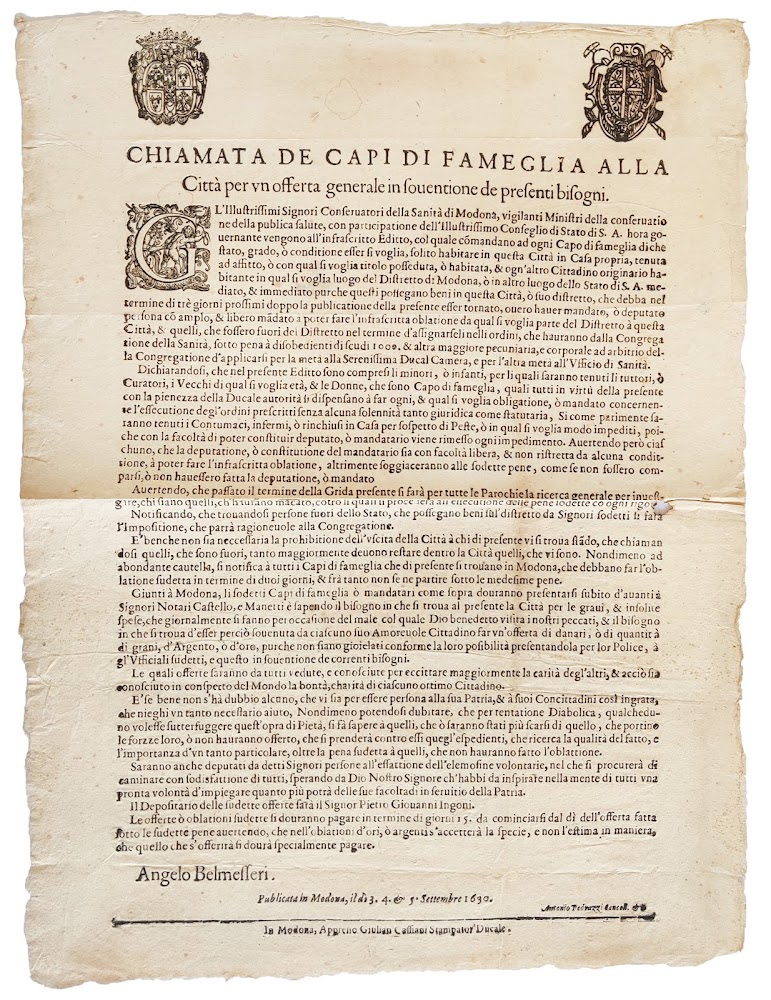 CHIAMATA DE CAPI DI FAMEGLIA ALLA
Città per vn offerta generale in souentione de presenti bisogni.
GL'Illustrissimi Signori Conseruatori della Sanità di Modona, vigilanti Ministri della conseruatio
ne della publica salute, con participatione dell'Illustrissimo Conseglio di Stato di S. A. hora go-
uernante vengono all'infrascritto Editto, col quale cōmandano ad ogni Capo di fameglia di che
stato, grado, ò conditione esser si voglia, solito habitare in questa Città in Casa propria, tenuta
ad affitto, ò con qual si voglia titolo posseduta, ò habitata, & ogn'altro Cittadino originario ha-
bitante in qual si voglia luogo del Distretto di Modona, ò in altro luogo dello Stato di S. A. me-
diato, & immediato purche questi possegano beni in questa Città, ò suo distretto, che debba nel
termine di trè giorni prossimi doppo la publicatione della presente esser tornato, ouero hauer mandato, ò deputato
persona cō amplo, & libero mādato a poter fare l'infrascritta oblatione da qual si voglia parte del Distretto à questa
Città, & quelli, che fossero fuori del Distretto nel termine d'assignarseli nelli ordini, che hauranno dalla Congrega
tione della Sanità, sotto pena à disobedienti di scudi 1000. & altra maggiore pecuniaria, e corporale ad arbitrio del-
la Congregatione d'applicarsi per la metà alla Serenissima Ducal Camera, e per l'altra metà all'Vfficio di Sanità.
Dichiarandosi, che nel presente Editto sono compresi li minori, ò infanti, per li quali saranno tenuti li tuttori, ò
Curatori, i Vecchi di qual si voglia età, & le Donne, che sono Capo di fameglia, quali tutti in virtù della presente
con la pienezza della Ducale autorità si dispensano à far ogni, & qual si voglia obligatione, ò mandato concernen-
te l'essecutione degl'ordini prescritti senza alcuna solennità tanto giuridica come statutaria, Si come parimente sa-
ranno tenuti i Contumaci, infermi, ò rinchiusi in Casa per sospetto di Peste, ò in qual si voglia modo impediti, poi-
che con la facoltà di poter constituir deputato, ò mandatario viene rimesso ogni impedimento. Auertendo però cias
chuno, che la deputatione, ò constitutione del mandatario sia con facoltà libera, & non ristretta da alcuna condi-
tione, à poter fare l'infrascritta oblatione, altrimente soggiaceranno alle sodette pene, come se non fossero com-
parsi, ò non hauessero fatta la deputatione, ò mandato
Auertendo, che passato il termine della Grida presente si farà per tutte le Parochie la ricerca generale per inuesti-
gare, chi siano quelli, ch'haurano mācato, contro li quali si procederà all'essecutione delle pene sodette cō ogni rigore
Notificando, che trouandosi persone fuori dello Stato, che possegano beni sùl distretto da Signori sodetti si farà
l'impositione, che parrà ragioneuole alla Congregatione.
E'benche non sia necessaria la prohibitione dell'vscita della Città à chi di presente vi si troua stādo, che chiaman
dosi quelli, che sono fuori, tanto maggiormente deuono restare dentro la Città quelli, che vi sono. Nondimeno ad
abondante cautella, si notifica à tutti i Capi di fameglia che di presente si trouano in Modona, che debbano far l'ob-
latione sudetta in termine di duoi giorni, & frà tanto non se ne partire sotto le medesime pene.
Giunti à Modona, li sodetti Capi di fameglia ò mandatari come sopra douranno presentarsi subito d'auanti à
Signori Notari Castello, e Manetti è sapendo il bisogno in che si troua al presente la Città per le graui, & insolite
spese, che giornalmente si fanno per occasione del male col quale Dio benedetto visita i nostri peccati, & il bisogno
in che si troua d'esser perciò souenuta da ciascuno suo Amoreuole Cittadino far vn'offerta di danari, ò di quantità
di grani, d'Argento, ò d'oro, purche non siano gioielati conforme la loro posibilità presentandola per lor Police, à
gl'Vfficiali sudetti, e questo in souentione de correnti bisogni.
Le quali offerte saranno da tutti vedute, e conosciute per eccittare maggiormente la carità degl'altri, & acciò sia
conosciuto in conspetto del Mondo la bontà, charità di ciascuno ottimo Cittadino.
E'se bene non s'hà dubbio alcuno, che vi sia per essere persona alla sua Patria, & à suoi Concittadini così ingrata,
che nieghi vn tanto necessario aiuto, Nondimeno potendosi dubitare, che per tentatione Diabolica, qualchedu-
no volesse sutterfuggere quest'opra di Pietà, si fà sapere à quelli, che ò saranno stati più scarsi di quello, che portino
le forzze loro, ò non hauranno offerto, che si prenderà contro essi quegl'espedienti, che ricerca la qualità del fatto, e
l'importanza d'vn tanto particolare, oltre la pena sudetta à quelli, che non hauranno fatto l'oblattione.
Saranno anche deputati da detti Signori persone all'essattione dell'elemosine volontarie, nel che si procurerà di
caminare con sodisfattione di tutti, sperando da Dio Nostro Signore ch'habbi da inspirare nella mente di tutti vna
pronta volontà d'impiegare quanto più potrà delle sue facoltadi in seruitio della Patria.
Il Depositario delle sudette offerte sarà il Signor Pietro Giouanni Ingoni.
Le offerte ò oblationi sudette si douranno pagare in termine di giorni 15. da cominciarsi dal dì dell'offerta fatta
sotto le sudette pene auertendo, che nell'oblationi d'ori, ò argenti s'accetterà la specie, e non l'estima in maniera,
che quello che s'offerirà si dourà specialmente pagare.
Angelo Belmesseri.
Publicata in Modona, il dì 3. 4. & 5. Settembre 1630.
Antonio Pedrazzi Cancell. &c
In Modona, Appresso Giulian Cassiani Stampator Ducale.